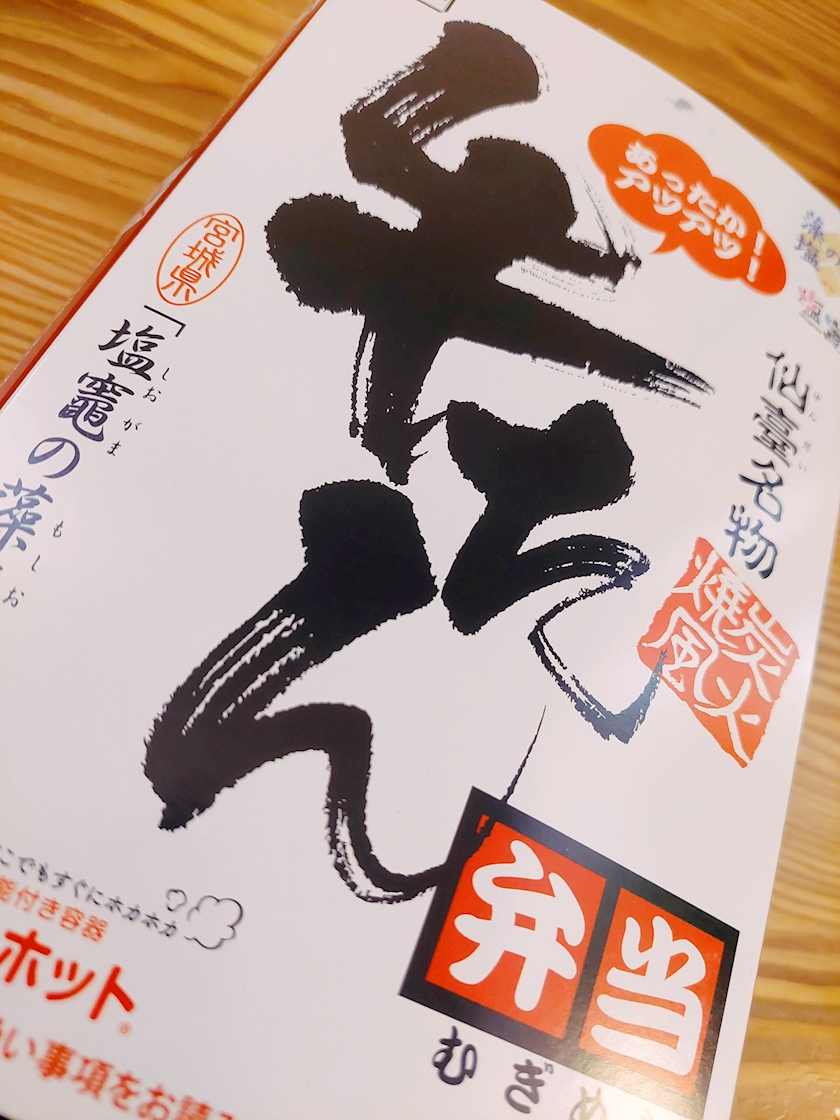 あったか
アツアツ!!
仙臺名物
せんだい
炭火
焼風
牛たん
弁当
むぎめ
宮城県
「塩竈の藻
しおがま
もしお
こでもすぐにホカホカ
能付き容器
ホット
い事項をお読